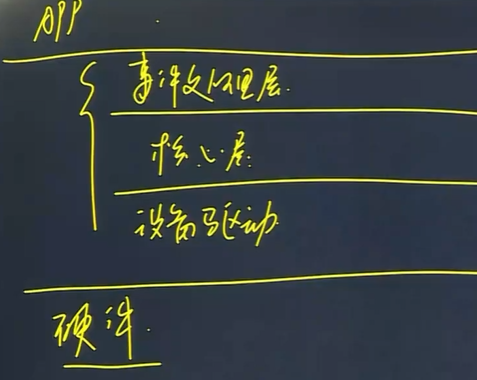 APP
事件处理层
核心层
设备驱动
硬件